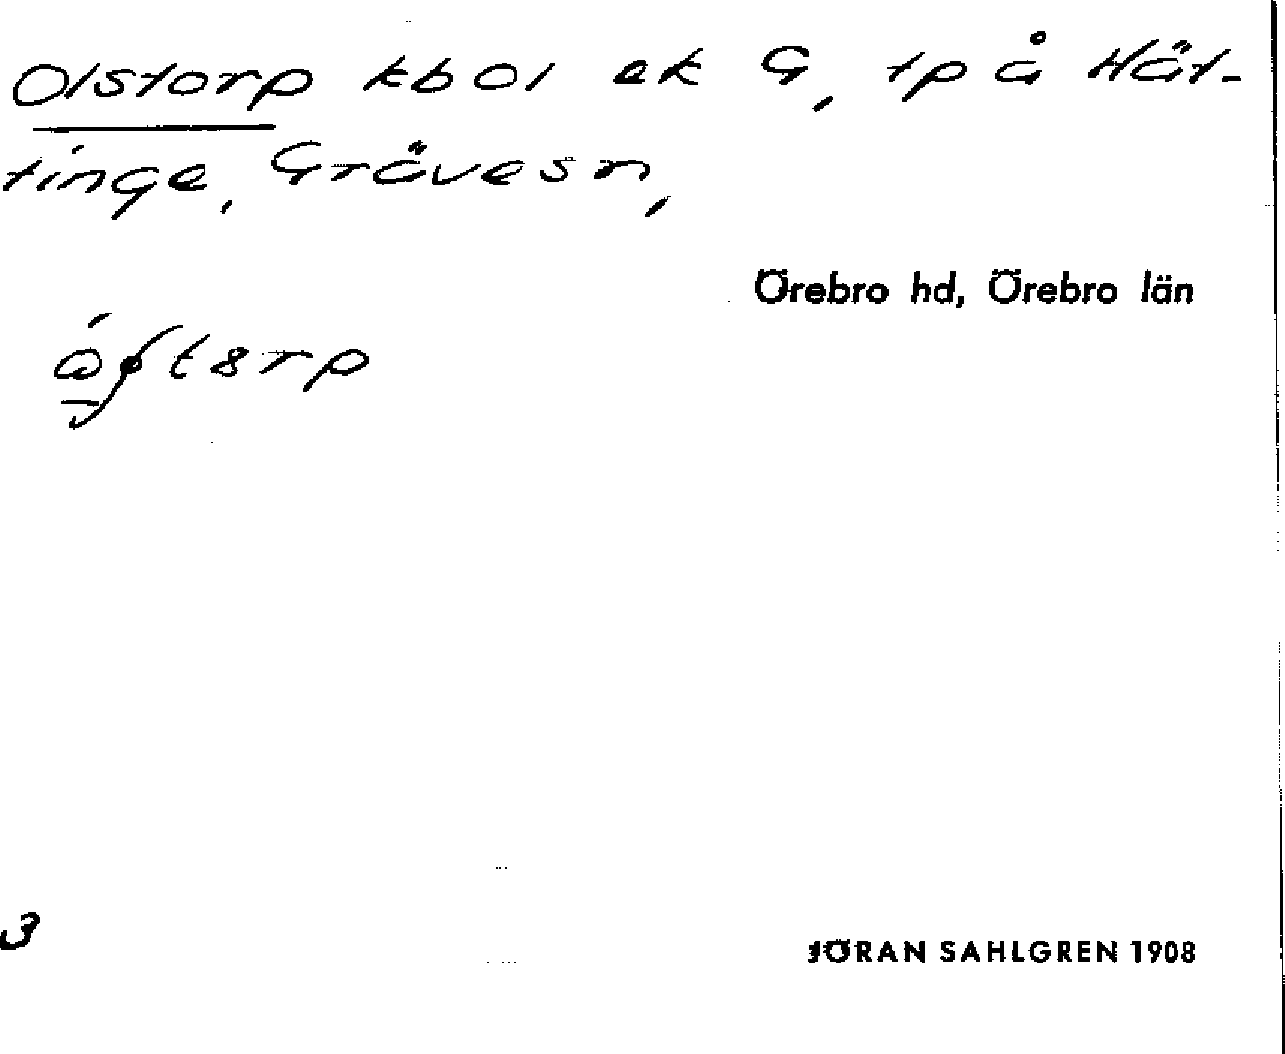 Olstorp kbol ek G, tp å Hät-
tinge, Grävesn,
Örebro hd, Örebro län
3
JÖRAN SAHLGREN 1908